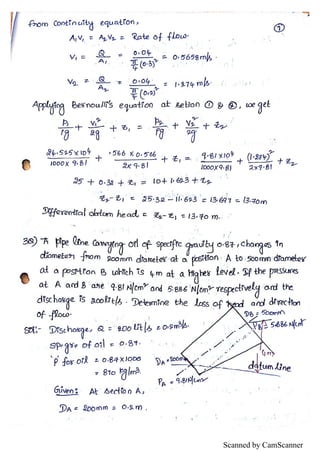 ①
From Continuity equation,
A₁V₁ = A₂V₂ = Rate of flow
V₁ = Q/A₁ = 0.04 / (π/4 (0.3)²) = 0.5658 m/s
V₂ = Q/A₂ = 0.04 / (π/4 (0.2)²) = 1.274 m/s
Applying Bernoulli's equation at Section ① & ②, we get
P₁/ρg + V₁²/2g + Z₁ = P₂/ρg + V₂²/2g + Z₂
24.525×10⁴/1000×9.81 + .566×0.566/2×9.81 + Z₁ = 9.81×10⁴/1000×9.81 + (1.274)²/2×9.81 + Z₂
25 + 0.32 + Z₁ = 10 + 1.623 + Z₂
Z₂ - Z₁ = 25.32 - 11.623 = 13.697 = 13.70m
Differential datum head = Z₂ - Z₁ = 13.70 m.
38) A pipe line Carrying oil of specific gravity 0.87, changes in
diameter from 200mm diameter at a position A to 500mm diameter
at a position B which is 4m at a higher level. If the pressures
at A and B are 9.81 N/cm² and 5.886 N/cm² respectively and the
discharge is 200 lit/s. Determine the loss of head and direction
of flow.
Sol:- Discharge, Q = 200 lit/s = 0.2 m³/s.
DB = 500mm
PB = 5.886 N/cm²
sp.gr of oil = 0.87.
ρ for oil = 0.87×1000
= 870 kg/m³.
DA = 200mm
4m
datum line
PA = 9.81 N/cm²
Given: At Section A,
DA = 200mm = 0.2m.
Scanned by CamScanner